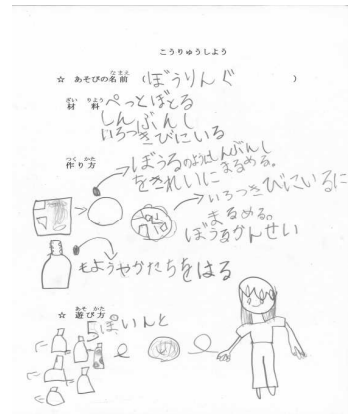 こうりゅうしよう
☆ あそびの名前 (ぼうりんぐ)
材料 ぺっとぼとる
しんぶんし
いろつきびにいる
作り方
ぼうるのようはしんぶんし
をきれいにまるめる。
いろつきびにいるに
まるめる。
ぼうるかんせい
もようやかたちをはる
☆ 遊び方
5ぽいんと